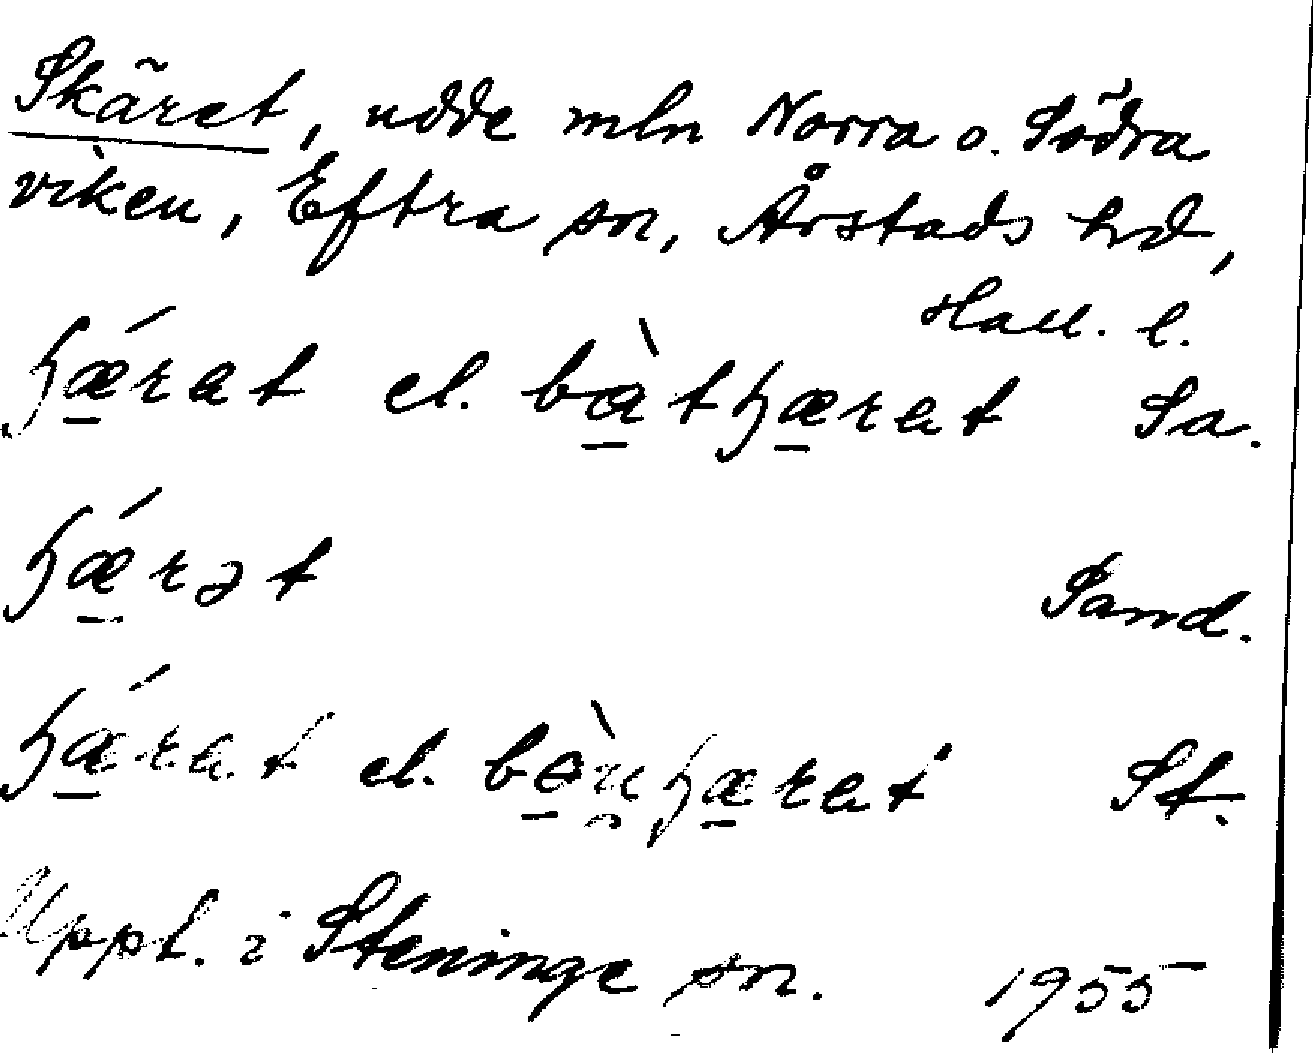 Skäret, udde mln Norra o. Södra
viken, Eftra sn, Årstads hd,
Hall. l.
ɧǽ̱rat el. bà̱tɧæ̱rat Sa.
ɧǽ̱rət Sand.
ɧǽ̱rat el. St.
Uppt. i Steninge sn. 1955